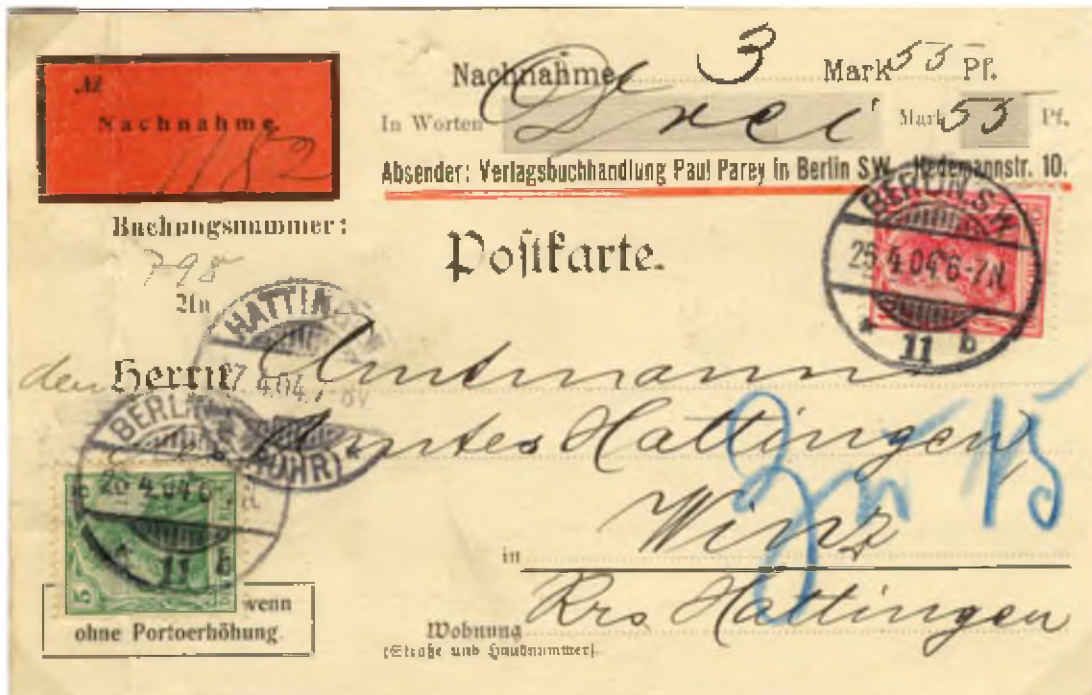 Nachnahme 3 Mark 55 Pf.
In Worten Drei Mark 55 Pf.
Absender: Verlagsbuchhandlung Paul Parey in Berlin SW. Hedemannstr. 10.
№
Nachnahme.
1182
Buchungsnummer:
798
Postkarte.
BERLIN.S.W
25.4.04 6-7N.
* 11 b
An
HATTINGEN
(RUHR)
27.4.04
den Herrn Amtmann
Amtes Hattingen
in Winz
Krs Hattingen
BERLIN
4.04 6
* 11 b
5
wenn
ohne Portoerhöhung.
Wohnung
(Straße und Hausnummer)